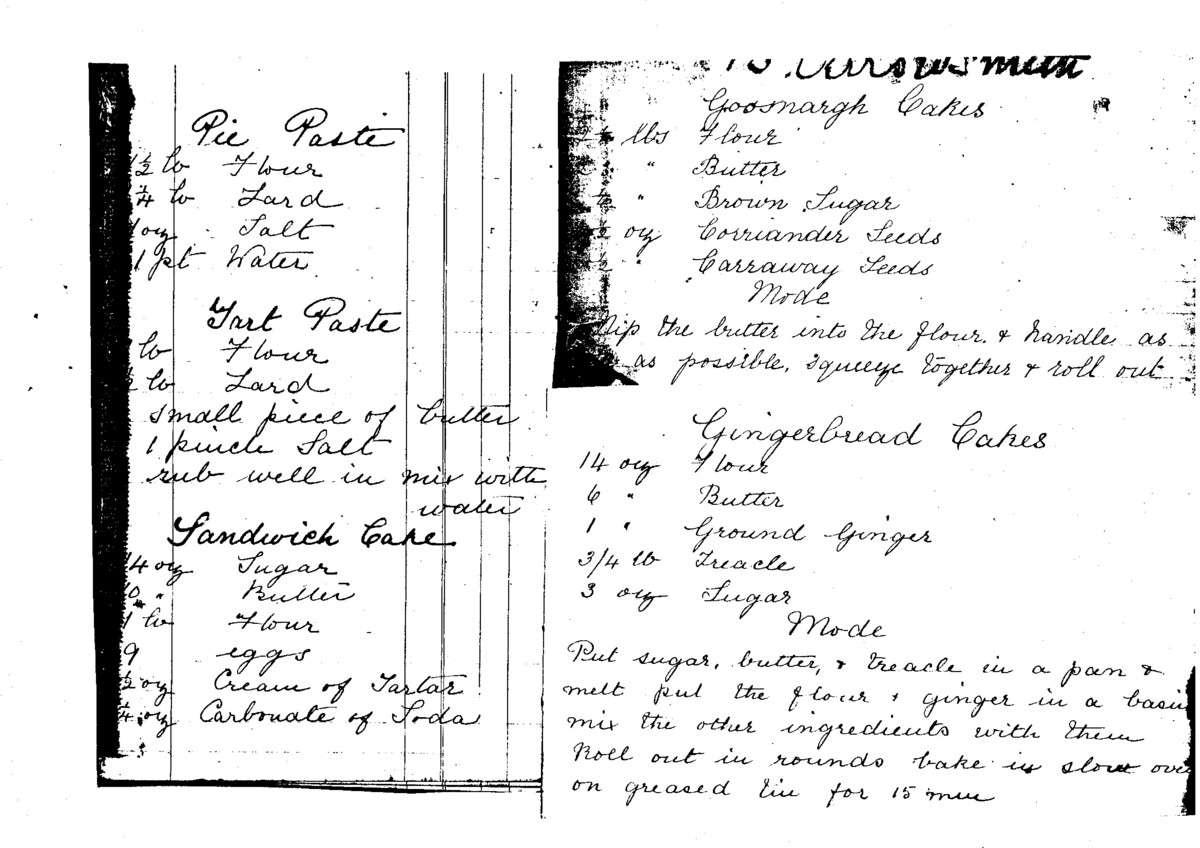 Pie Paste
1½ lb Flour
¼ lb Lard
1 oz Salt
1 pt Water
Tart Paste
lb Flour
lb Lard
small piece of butter
1 pinch Salt
rub well in mix with
water
Sandwich Cake
14 oz Sugar
10 " Butter
1 lb Flour
9 eggs
½ oz Cream of Tartar
¼ oz Carbonate of Soda
Arrowsmith
Goosnargh Cakes
lbs Flour
" Butter
" Brown Sugar
½ oz Corriander Seeds
½ " Carraway Seeds
Mode
Nip the butter into the flour. & handle as
as possible, squeeze together & roll out
Gingerbread Cakes
14 oz Flour
6 " Butter
1 " Ground Ginger
3/4 lb Treacle
3 oz Sugar
Mode
Put sugar, butter, & treacle in a pan &
melt put the flour & ginger in a basin
mix the other ingredients with them
Roll out in rounds bake in slow ove
on greased tin for 15 min